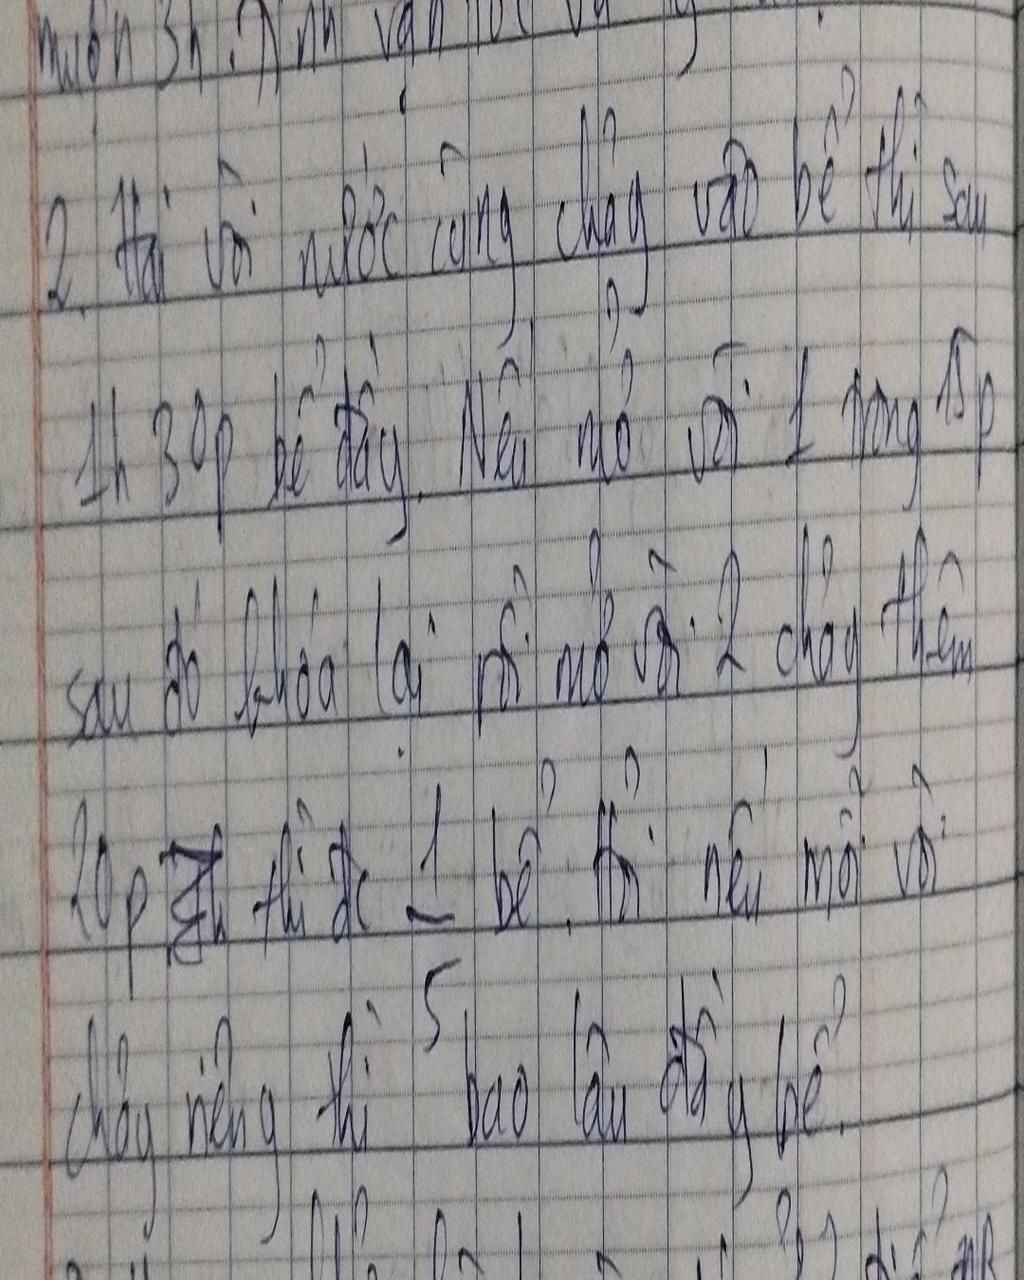 muộn 3h. Tính vận tốc
2. Hai vòi nước cùng chảy vào bể thì sau
1h 30p bể đầy. Nếu mở vòi 1 trong 15p
sau đó khóa lại rồi mở vòi 2 chảy thêm
20p thì đc 1/5 bể. Hỏi nếu mỗi vòi
chảy riêng thì bao lâu đầy bể.